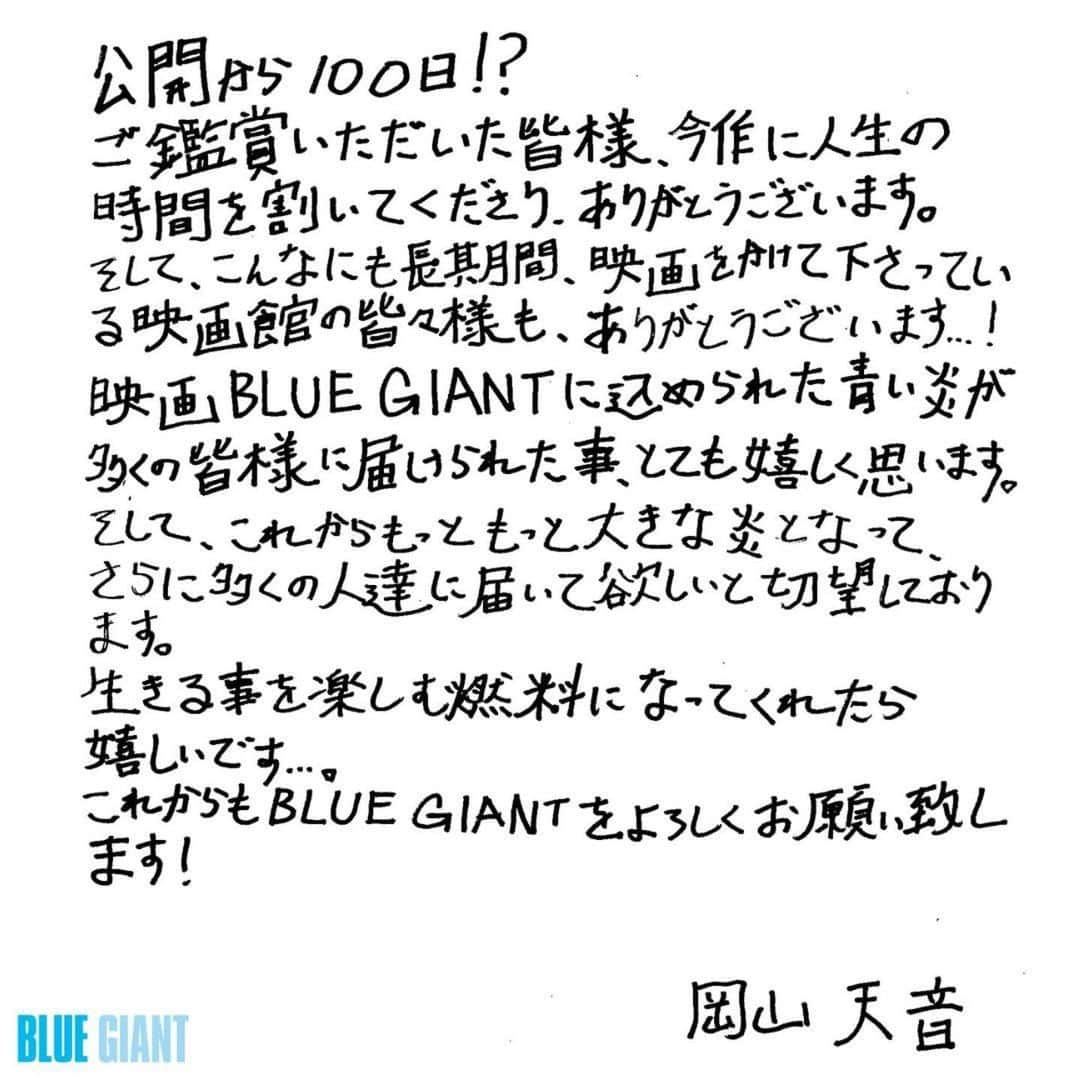 公開から100日!?
ご鑑賞いただいた皆様、今作に人生の
時間を割いてくださり、ありがとうございます。
そして、こんなにも長期間、映画をかけて下さってい
る映画館の皆々様も、ありがとうございます…!
映画BLUE GIANTに込められた青い炎が
多くの皆様に届けられた事、とても嬉しく思います。
そして、これからもっともっと大きな炎となって、
さらに多くの人達に届いて欲しいと切望しており
ます。
生きる事を楽しむ燃料になってくれたら
嬉しいです…。
これからもBLUE GIANTをよろしくお願い致し
ます!
岡山 天音
BLUE GIANT